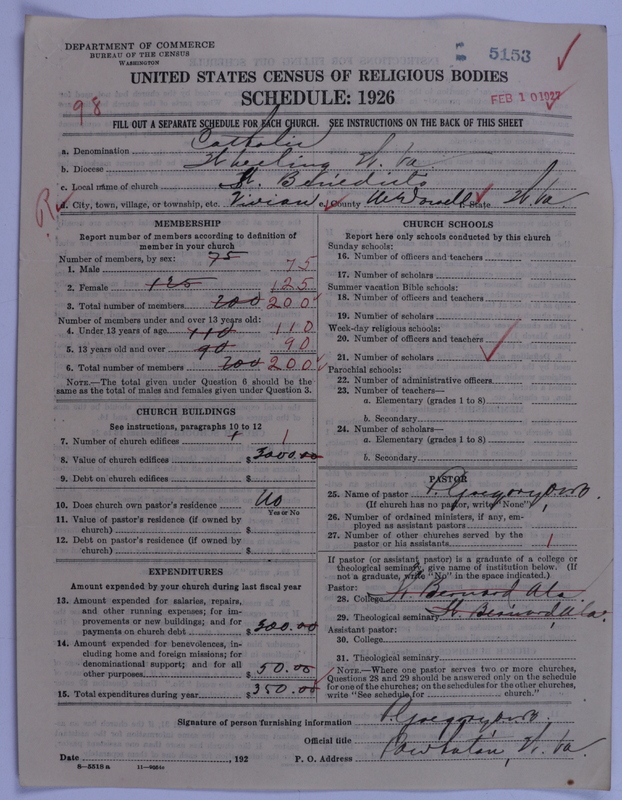 DEPARTMENT OF COMMERCE
BUREAU OF THE CENSUS
WASHINGTON
5153
UNITED STATES CENSUS OF RELIGIOUS BODIES
SCHEDULE: 1926
FEB 10 1927
98
FILL OUT A SEPARATE SCHEDULE FOR EACH CHURCH. SEE INSTRUCTIONS ON THE BACK OF THIS SHEET
a. Denomination Catholic
b. Diocese Wheeling W. Va.
c. Local name of church St. Benedicts
d. City, town, village, or township, etc. Vivian e. County McDowell f. State W. Va.
MEMBERSHIP
Report number of members according to definition of
member in your church
Number of members, by sex: 75
1. Male 75
2. Female 125 125
3. Total number of members 200 200
Number of members under and over 13 years old:
4. Under 13 years of age 110 110
5. 13 years old and over 90 90
6. Total number of members 200 200
NOTE.—The total given under Question 6 should be the
same as the total of males and females given under Question 3.
CHURCH BUILDINGS
See instructions, paragraphs 10 to 12
7. Number of church edifices 1
8. Value of church edifices $ 3000.00
9. Debt on church edifices $
10. Does church own pastor's residence No
Yes or No
11. Value of pastor's residence (if owned by
church) $
12. Debt on pastor's residence (if owned by
church) $
EXPENDITURES
Amount expended by your church during last fiscal year
13. Amount expended for salaries, repairs,
and other running expenses; for im-
provements or new buildings; and for
payments on church debt $ 300.00
14. Amount expended for benevolences, in-
cluding home and foreign missions; for
denominational support; and for all
other purposes 50.00
15. Total expenditures during year $ 350.00
CHURCH SCHOOLS
Report here only schools conducted by this church
Sunday schools:
16. Number of officers and teachers
17. Number of scholars
Summer vacation Bible schools:
18. Number of officers and teachers
19. Number of scholars
Week-day religious schools:
20. Number of officers and teachers
21. Number of scholars
Parochial schools:
22. Number of administrative officers
23. Number of teachers—
a. Elementary (grades 1 to 8)
b. Secondary
24. Number of scholars—
a. Elementary (grades 1 to 8)
b. Secondary
PASTOR
25. Name of pastor P. Gregory O.S.B.
(If church has no pastor, write "None")
26. Number of ordained ministers, if any, em-
ployed as assistant pastors
27. Number of other churches served by the
pastor or his assistants 1
If pastor (or assistant pastor) is a graduate of a college or
theological seminary, give name of institution below. (If
not a graduate, write "No" in the space indicated.)
Pastor:
28. College St. Bernard Ala
29. Theological seminary St. Bernard Ala.
Assistant pastor:
30. College
31. Theological seminary
NOTE.—Where one pastor serves two or more churches,
Questions 28 and 29 should be answered only on the schedule
for one of the churches; on the schedules for the other churches,
write "See schedule for church."
Signature of person furnishing information P. Gregory O.S.B.
Official title
Date , 192 P. O. Address Powhatan, W. Va.
8—5318 a